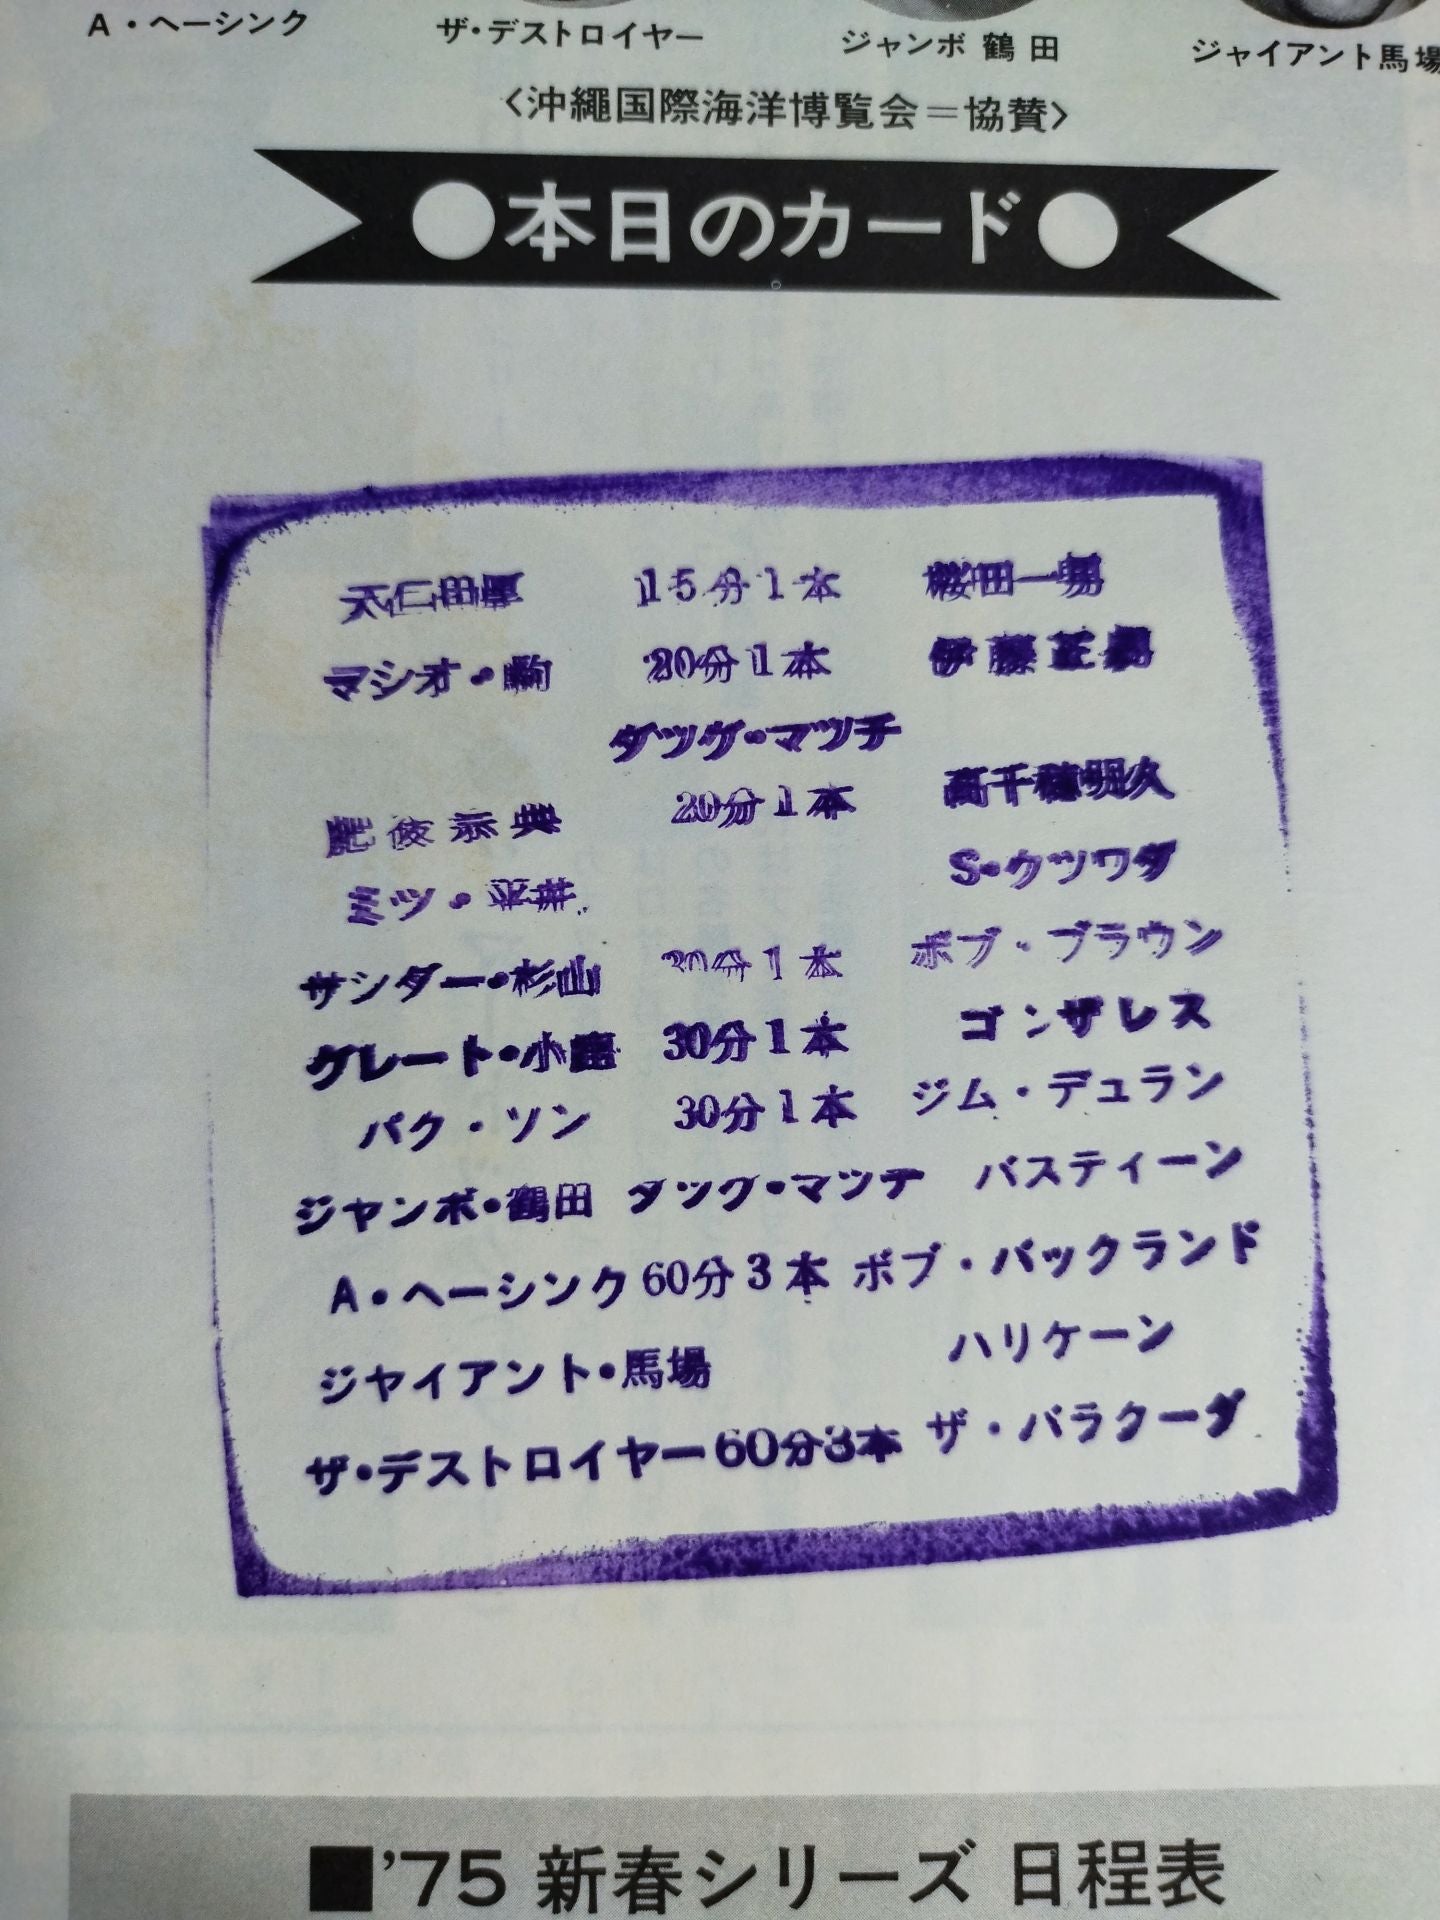 A・ヘーシンク ザ・デストロイヤー ジャンボ鶴田 ジャイアント馬場
〈沖縄国際海洋博覧会＝協賛〉
●本日のカード●
大仁田厚 15分1本 桜田一男
マシオ・駒 20分1本 伊藤正男
タツグ・マツチ
肥後宗典 20分1本 高千穂明久
ミツ・平井 S・クツワダ
サンダー・杉山 30分1本 ボブ・ブラウン
グレート・小鹿 30分1本 ゴンザレス
パク・ソン 30分1本 ジム・デュラン
ジヤンボ・鶴田 タツグ・マツチ バスティーン
A・ヘーシンク 60分3本 ボブ・バックランド
ジヤイアント・馬場 ハリケーン
ザ・デストロイヤー 60分3本 ザ・バラクーダ
■'75 新春シリーズ 日程表